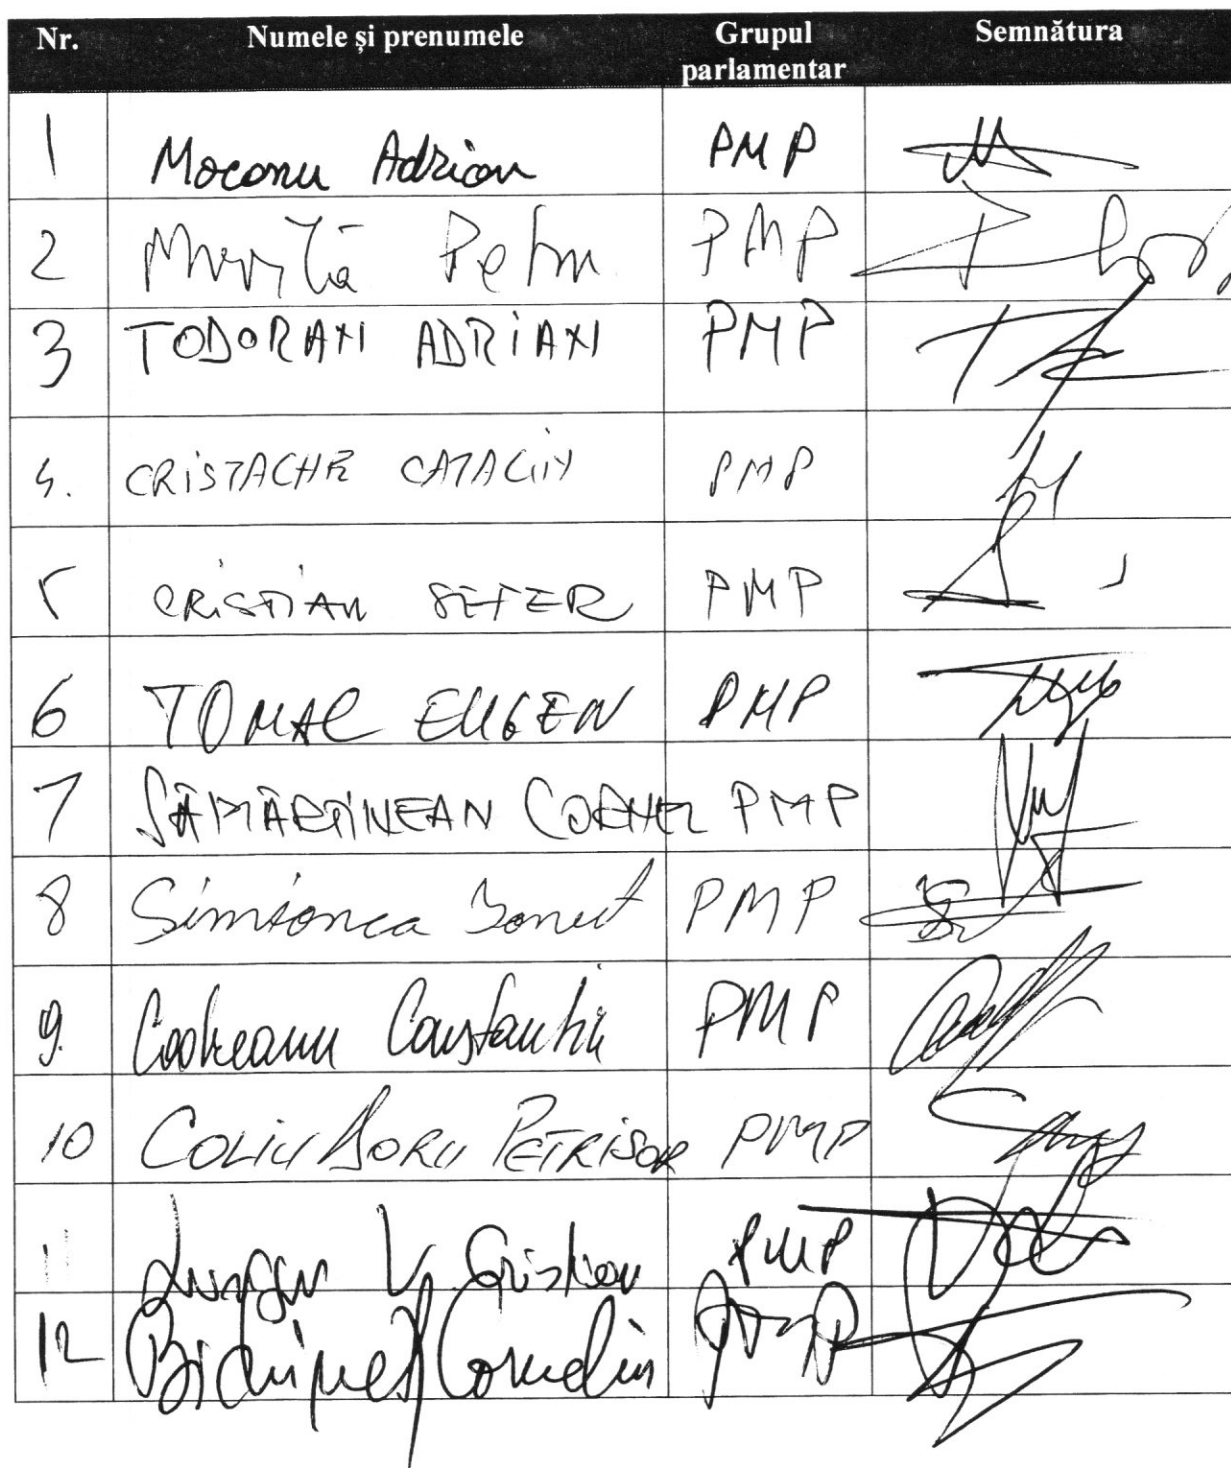 Nr. Numele și prenumele Grupul parlamentar Semnătura
1 Mocanu Adrian PMP
2 Petru PMP
3 TODORAN ADRIAN PMP
4. CRISTACHE CATALIN PMP
5 CRISTIAN SEFER PMP
6 TOMAC EUGEN PMP
7 SĂMĂRTINEAN CORNEL PMP
8 Simionca Ionut PMP
9. Codreanu Constantin PMP
10 COLIU DORU PETRISOR PMP
11 Lungu V Cristian PMP
12 Bichineț Corneliu PMP